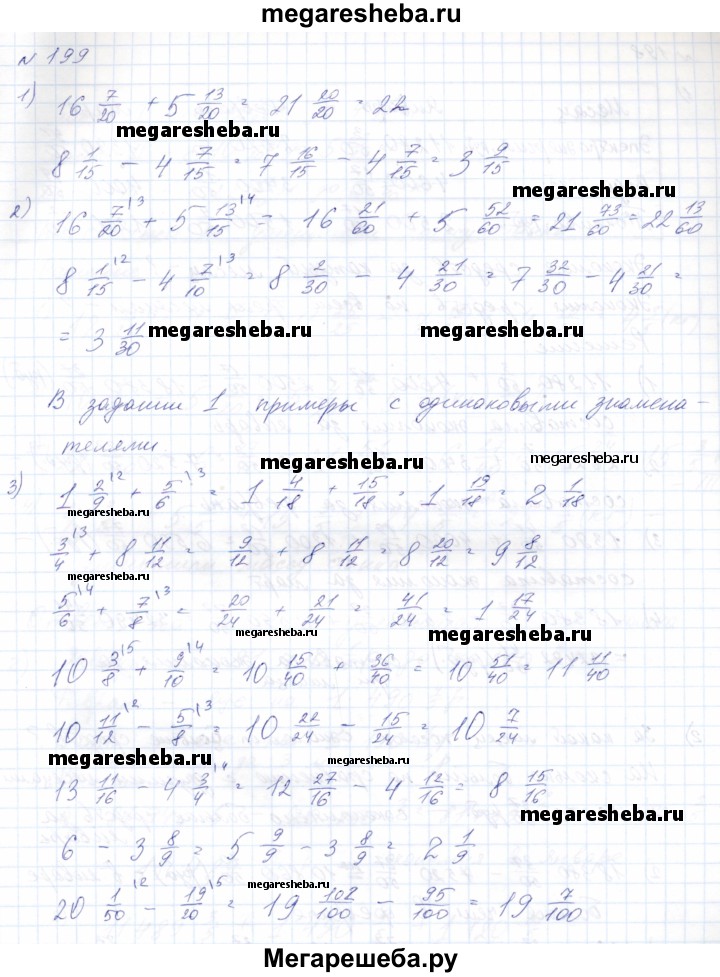 megaresheba.ru
№ 199
1) 16 7/20 + 5 13/20 = 21 20/20 = 22
megaresheba.ru
8 1/15 - 4 7/15 = 7 16/15 - 4 7/15 = 3 9/15
megaresheba.ru
2) 16 7/20 |3 + 5 13/15 |4 = 16 21/60 + 5 52/60 = 21 73/60 = 22 13/60
8 1/15 |2 - 4 7/10 |3 = 8 2/30 - 4 21/30 = 7 32/30 - 4 21/30 =
= 3 11/30
megaresheba.ru megaresheba.ru
В задании 1 примеры с одинаковыми знамена-
телями
megaresheba.ru megaresheba.ru
3) 1 2/9 |2 + 5/6 |3 = 1 4/18 + 15/18 = 1 19/18 = 2 1/18
megaresheba.ru
3/4 |3 + 8 11/12 = 9/12 + 8 11/12 = 8 20/12 = 9 8/12
megaresheba.ru
5/6 + 7/8 |3 = 20/24 + 21/24 = 41/24 = 1 17/24
megaresheba.ru megaresheba.ru
10 3/8 |5 + 9/10 |4 = 10 15/40 + 36/40 = 10 51/40 = 11 11/40
10 11/12 |2 - 5/8 |3 = 10 22/24 - 15/24 = 10 7/24
megaresheba.ru megaresheba.ru
13 11/16 - 4 3/4 |4 = 12 27/16 - 4 12/16 = 8 15/16
megaresheba.ru
6 - 3 8/9 = 5 9/9 - 3 8/9 = 2 1/9
megaresheba.ru
20 1/50 |2 - 19/20 |5 = 19 102/100 - 95/100 = 19 7/100
Мегарешеба.ру